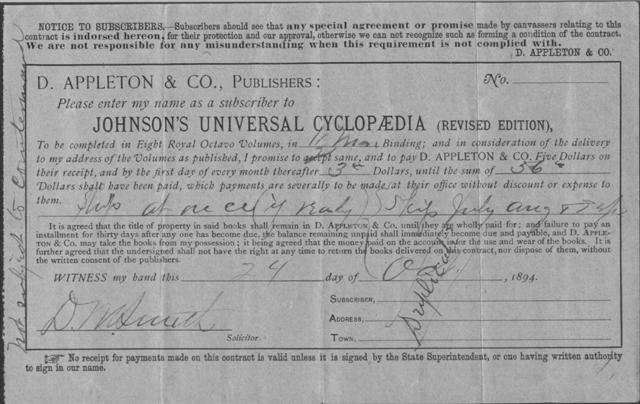 NOTICE TO SUBSCRIBERS.—Subscribers should see that any special agreement or promise made by canvassers relating to this
contract is indorsed hereon, for their protection and our approval, otherwise we can not recognize such as forming a condition of the contract.
We are not responsible for any misunderstanding when this requirement is not complied with.
D. APPLETON & CO.
D. APPLETON & CO., PUBLISHERS: No.
Please enter my name as a subscriber to
JOHNSON'S UNIVERSAL CYCLOPÆDIA (REVISED EDITION),
To be completed in Eight Royal Octavo Volumes, in Binding; and in consideration of the delivery
to my address of the Volumes as published, I promise to accept same, and to pay D. APPLETON & CO. Five Dollars on
their receipt, and by the first day of every month thereafter 3 Dollars, until the sum of 56
Dollars shall have been paid, which payments are severally to be made at their office without discount or expense to
them. Ship at once Ship July
It is agreed that the title of property in said books shall remain in D. APPLETON & CO. until they are wholly paid for; and failure to pay an
installment for thirty days after any one has become due, the balance remaining unpaid shall immediately become due and payable, and D. APPLE-
TON & CO. may take the books from my possession; it being agreed that the money paid on the account is for the use and wear of the books. It is
further agreed that the undersigned shall not have the right at any time to return the books delivered on this contract, nor dispose of them, without
the written consent of the publishers.
WITNESS my hand this 24 day of 1894.
SUBSCRIBER,
D. W. Smith ADDRESS,
Solicitor. TOWN,
Duplicate
Not subject to countermand
No receipt for payments made on this contract is valid unless it is signed by the State Superintendent, or one having written authority
to sign in our name.